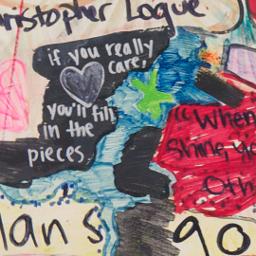 ristopher Logue
if you really
care,
you'll fill
in the
pieces
"When
Shine, yo
Oth
lan s
go